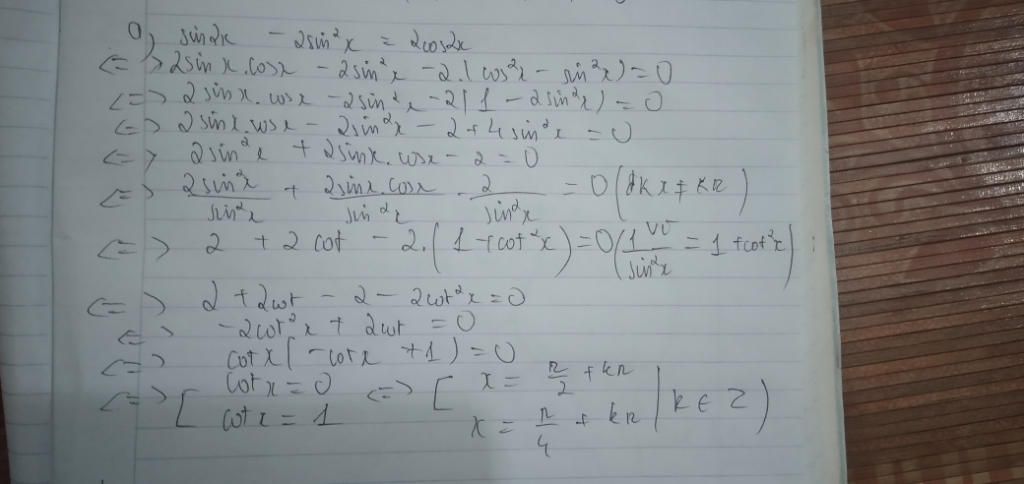 a) sin2x - 2sin²x = 2cos2x
<=> 2sin x.cosx - 2sin²x - 2.(cos²x - sin²x) = 0
<=> 2sinx.cosx - 2sin²x - 2(1 - 2sin²x) = 0
<=> 2sinx.cosx - 2sin²x - 2 + 4sin²x = 0
<=> 2sin²x + 2sinx.cosx - 2 = 0
<=> 2sin²x/sin²x + 2sinx.cosx/sin²x - 2/sin²x = 0 (đk x ≠ kπ)
<=> 2 + 2cot - 2.(1 + cot²x) = 0 (vì 1/sin²x = 1 + cot²x)
<=> 2 + 2cot - 2 - 2cot²x = 0
<=> -2cot²x + 2cot = 0
<=> cotx(-cotx + 1) = 0
<=> [ cotx = 0 <=> [ x = π/2 + kπ
cotx = 1 x = π/4 + kπ | k ∈ Z)